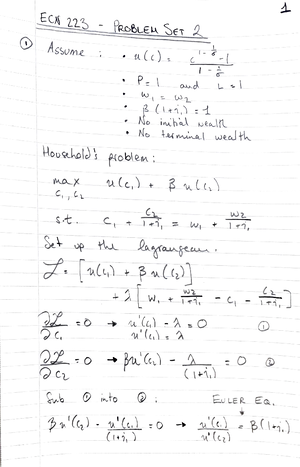 1
ECN 223 - PROBLEM SET 2
① Assume : • u(c) = (c^(1-1/σ) - 1)/(1 - 1/σ)
• P = 1 and L = 1
• w₁ = w₂
• β(1+r₁) = 1
• No initial wealth
• No terminal wealth
Household's problem:
max u(c₁) + β u(c₂)
c₁, c₂
s.t. c₁ + c₂/(1+r₁) = w₁ + w₂/(1+r₁)
Set up the lagrangean.
ℒ = [u(c₁) + β u(c₂)]
+ λ [w₁ + w₂/(1+r₁) - c₁ - c₂/(1+r₁)]
∂ℒ/∂c₁ = 0 → u'(c₁) - λ = 0 ①
u'(c₁) = λ
∂ℒ/∂c₂ = 0 → βu'(c₂) - λ/(1+r₁) = 0 ②
Sub ① into ② : EULER EQ.
βu'(c₂) - u'(c₁)/(1+r₁) = 0 → u'(c₁)/u'(c₂) = β(1+r₁)